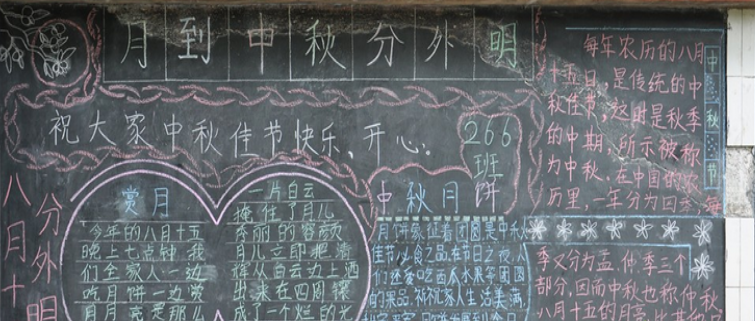 月到中秋分外明
祝大家中秋佳节快乐、开心.
266
班
八月十
分外明
赏月
今年的八月十五
晚上七点钟,我
们全家人一边
吃月饼一边赏
月
一片白云
掩住了月儿
秀丽的容颜
月儿立即把清
辉从白云边上洒
出来在四周镶
成了一个烂的光
中秋月饼
月饼象征着团圆是中秋
佳节必食之品.在节日之夜,人
们还爱吃西瓜水果等团圆
的果品,祈祝家人生活美满.
中秋节
每年农历的八月
十五日,是传统的中
秋佳节,这时是秋季
的中期,所示被称
为中秋。在中国的农
历里,一年分为四季,每
季又分为孟、仲、季三个
部分,因而中秋也称仲秋
八月十五的月亮比其